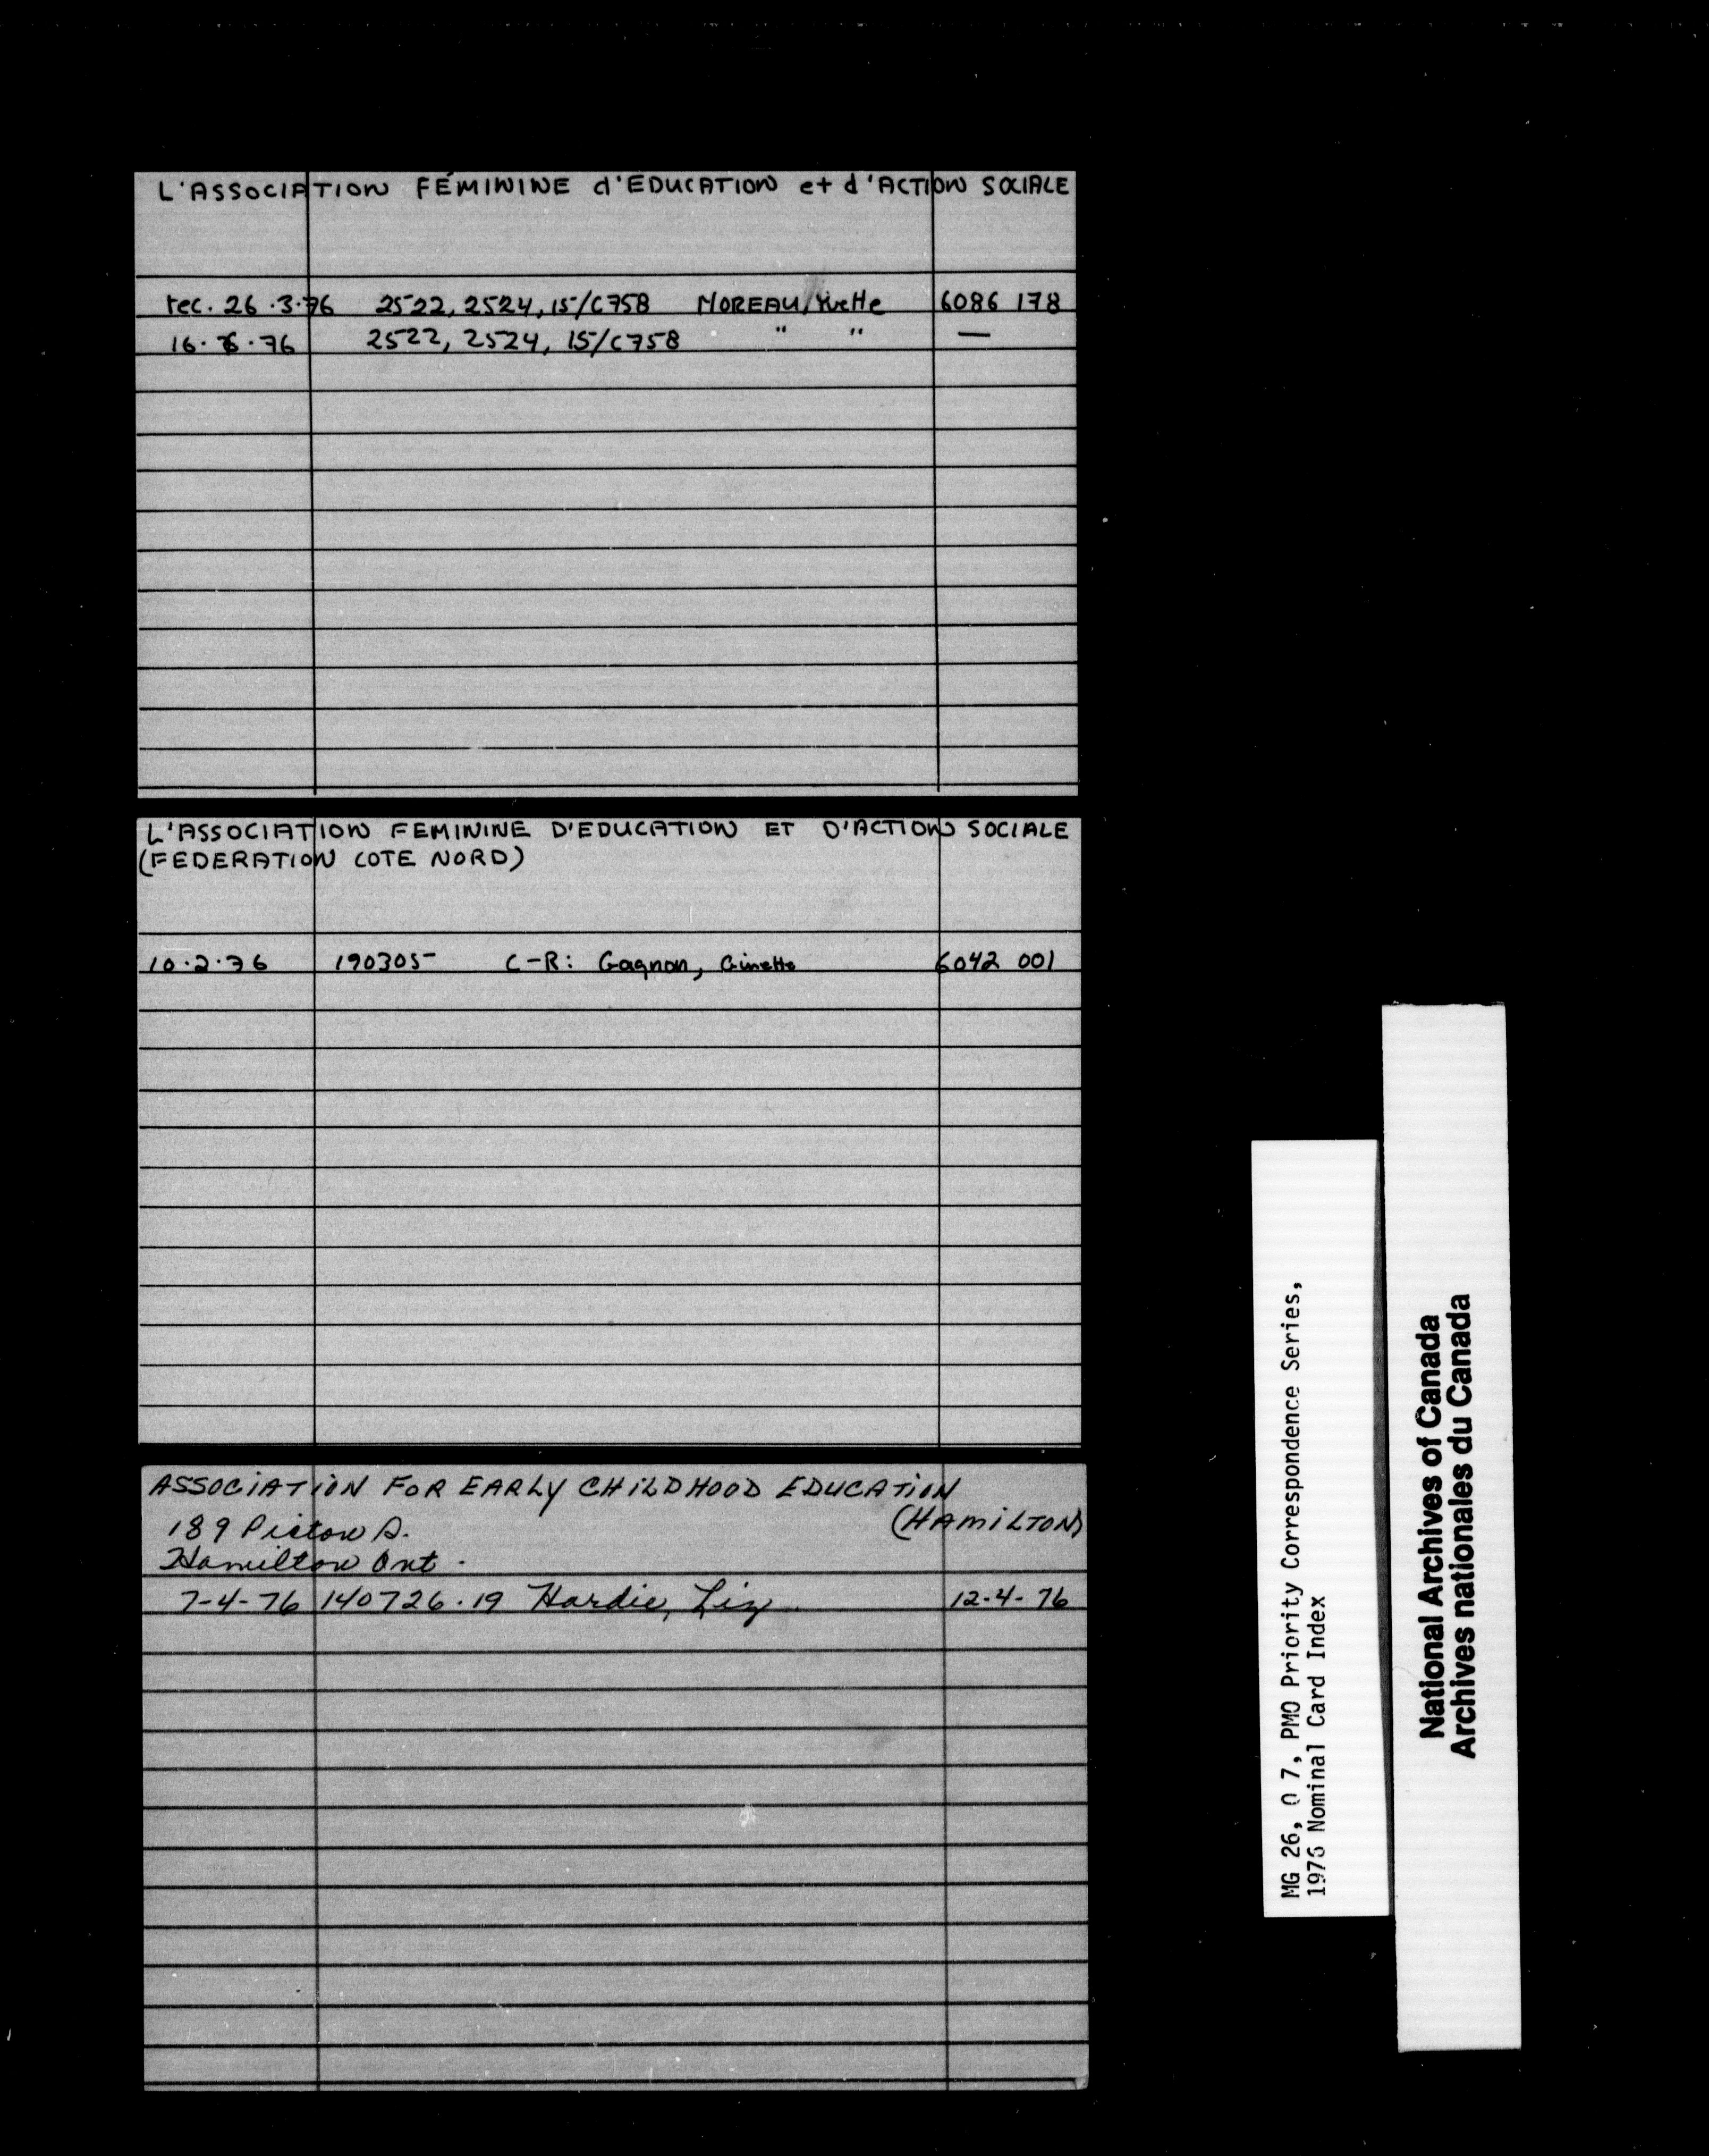 L'ASSOCIATION FÉMININE d'EDUCATION et d'ACTION SOCIALE
rec. 26.3.76 2522, 2524, 15/C758 MOREAU, Yvette 6086 178
16. .76 2522, 2524, 15/C758 " " —
L'ASSOCIATION FEMININE D'EDUCATION ET D'ACTION SOCIALE
(FEDERATION COTE NORD)
10.2.76 190305 C-R: Gagnon, Ginette 6042 001
ASSOCIATION FOR EARLY CHILDHOOD EDUCATION
(HAMILTON)
189 S.
Hamilton Ont.
7-4-76 140726.19 Hardie, Liz 12-4-76
MG 26, O 7, PMO Priority Correspondence Series,
1976 Nominal Card Index
National Archives of Canada
Archives nationales du Canada